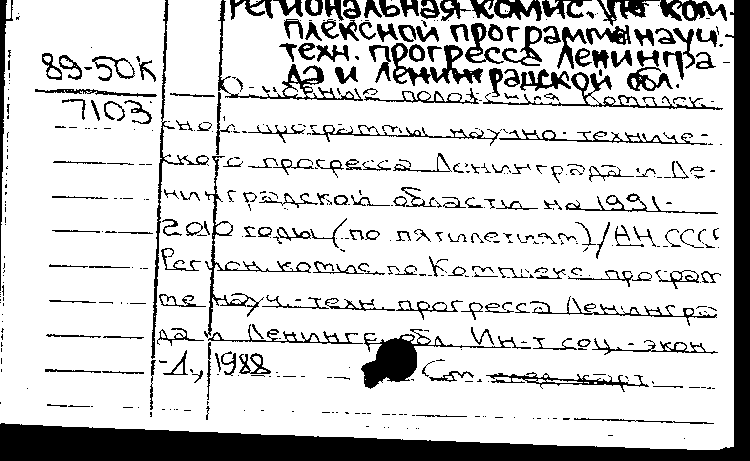 Региональная комис. по ком-
плексной программе науч.-
техн. прогресса Ленингра-
да и Ленинградской обл.
89-50К
7103
Основные положения Комплек-
сной программы научно-техниче-
ского прогресса Ленинграда и Ле-
нинградской области на 1991-
2010 годы (по пятилетиям)/АН СССР
Регион. комис. по Комплекс. програм
ме науч.-техн. прогресса Ленингра
да и Ленингр. обл. Ин-т соц.-экон.
-1., 1988
См. след. карт.